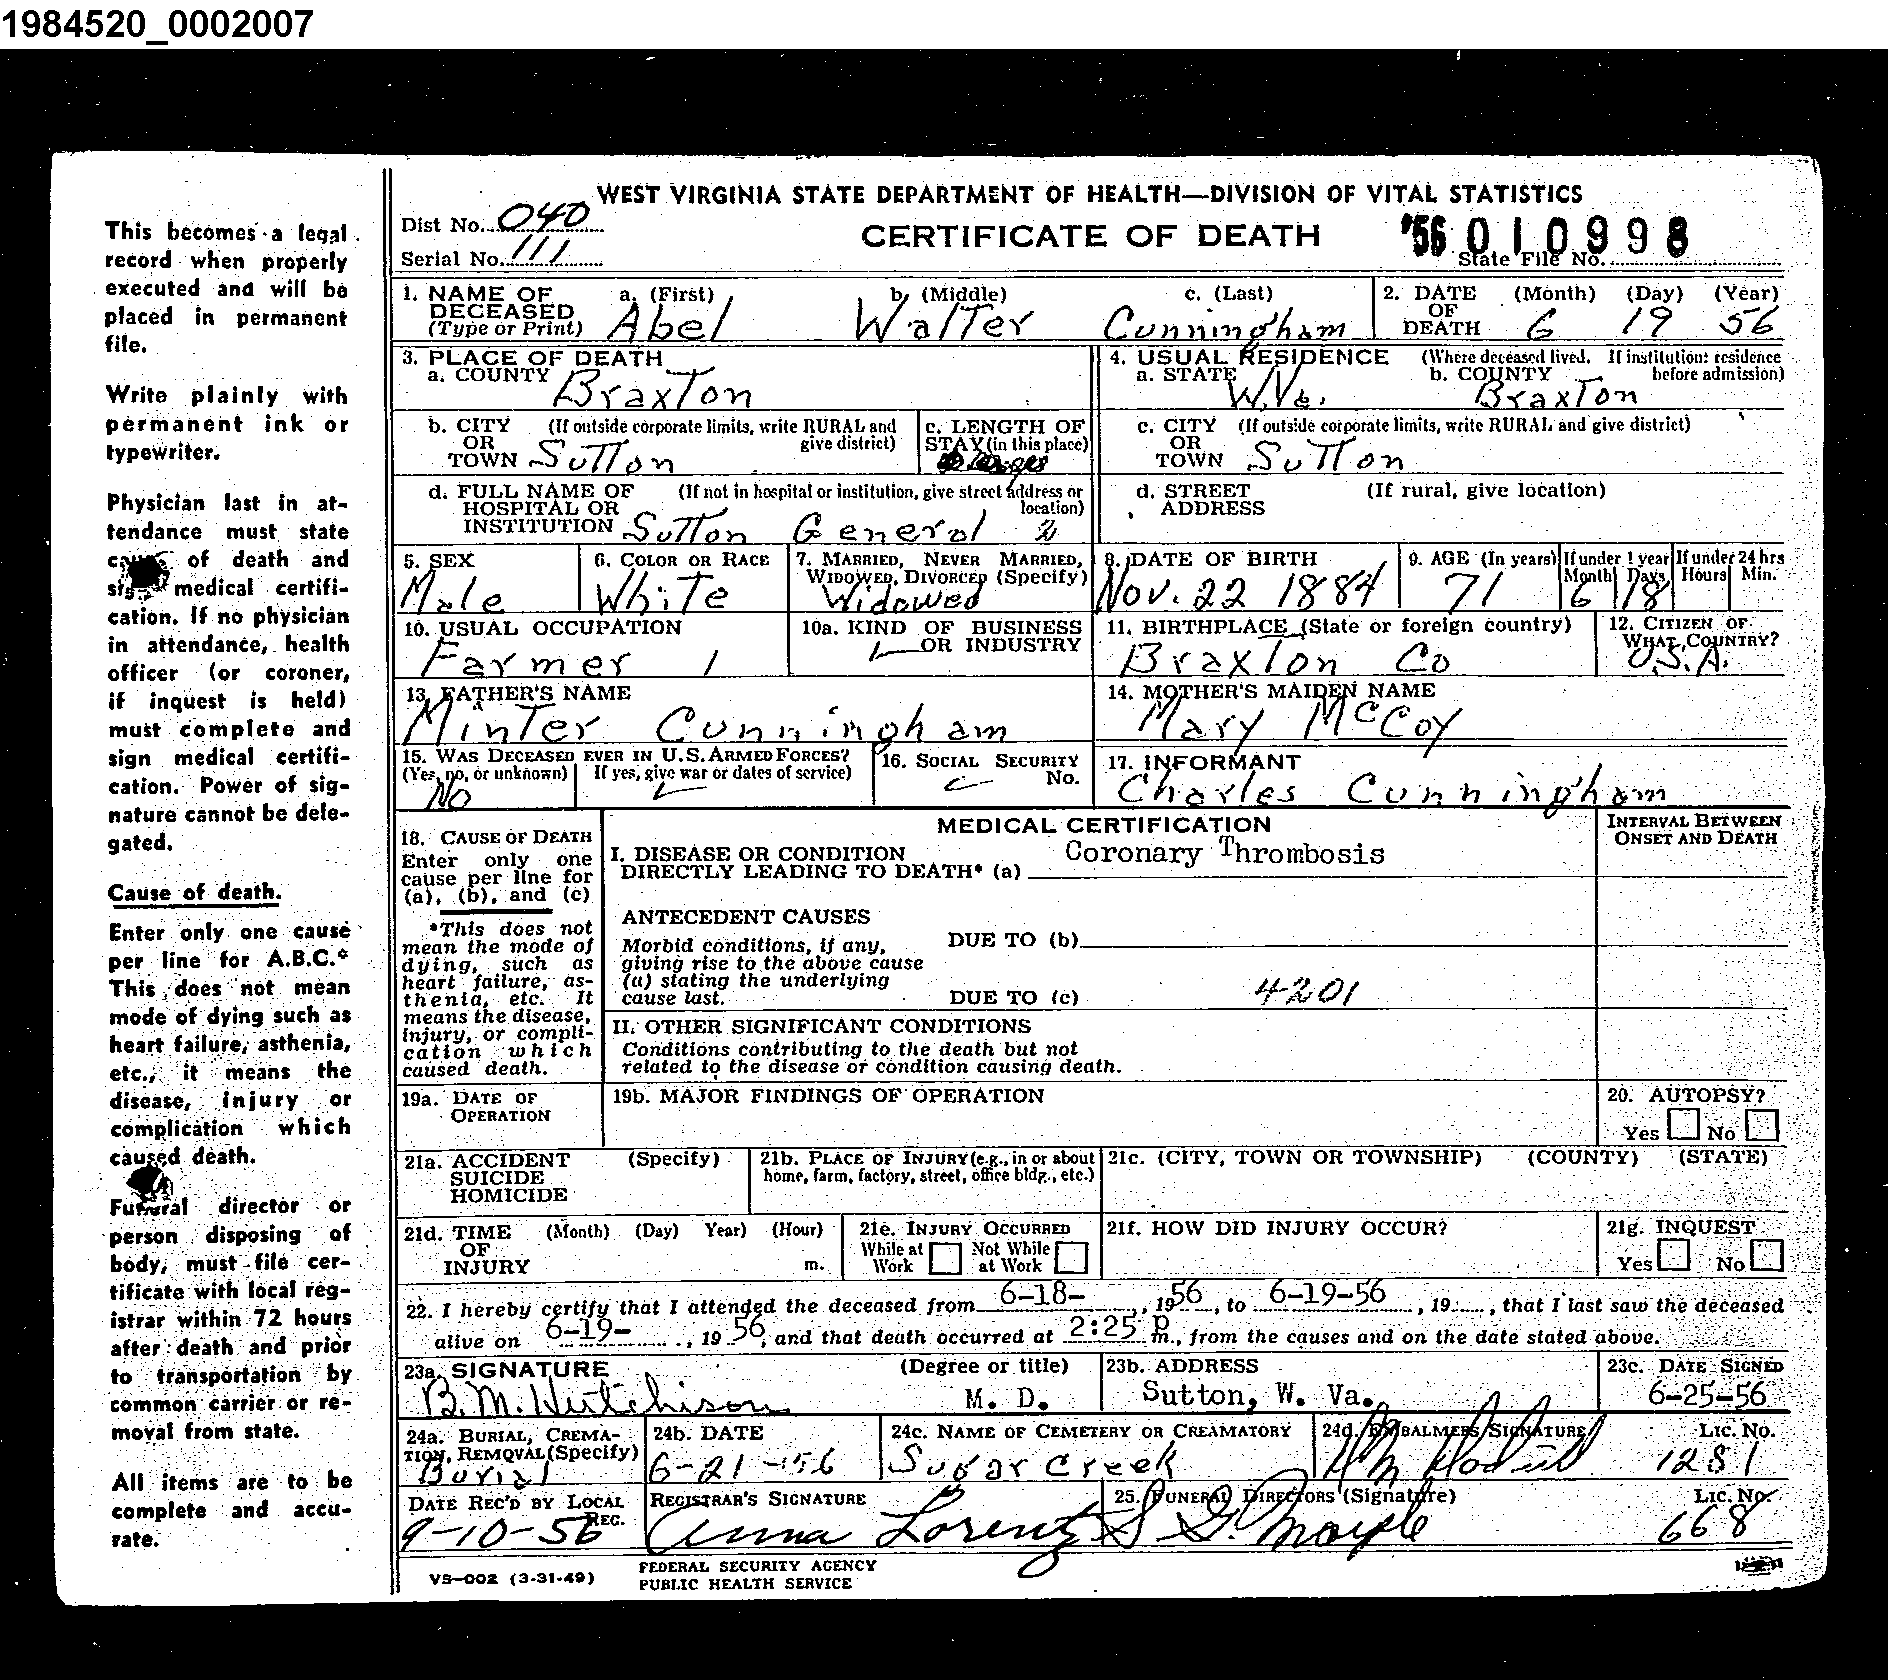 1984520_0002007
WEST VIRGINIA STATE DEPARTMENT OF HEALTH—DIVISION OF VITAL STATISTICS
Dist No. 040
Serial No. 111
CERTIFICATE OF DEATH
'56 010998
State File No.
This becomes a legal
record when properly
executed and will be
placed in permanent
file.
Write plainly with
permanent ink or
typewriter.
Physician last in at-
tendance must state
cause of death and
medical certifi-
cation. If no physician
in attendance, health
officer (or coroner,
if inquest is held)
must complete and
sign medical certifi-
cation. Power of sig-
nature cannot be dele-
gated.
Cause of death.
Enter only one cause
per line for A.B.C.*
This does not mean
mode of dying such as
heart failure, asthenia,
etc., it means the
disease, injury or
complication which
caused death.
Funeral director or
person disposing of
body, must file cer-
tificate with local reg-
istrar within 72 hours
after death and prior
to transportation by
common carrier or re-
moval from state.
All items are to be
complete and accu-
rate.
1. NAME OF DECEASED (Type or Print) a. (First) Abel b. (Middle) Walter c. (Last) Cunningham
2. DATE OF DEATH (Month) 6 (Day) 19 (Year) 56
3. PLACE OF DEATH
a. COUNTY Braxton
4. USUAL RESIDENCE (Where deceased lived. If institution: residence before admission)
a. STATE W.Va. b. COUNTY Braxton
b. CITY OR TOWN (If outside corporate limits, write RURAL and give district) Sutton
c. LENGTH OF STAY (in this place)
c. CITY OR TOWN (If outside corporate limits, write RURAL and give district) Sutton
d. FULL NAME OF HOSPITAL OR INSTITUTION (If not in hospital or institution, give street address or location) Sutton General 2
d. STREET ADDRESS (If rural, give location)
5. SEX Male
6. COLOR OR RACE White
7. MARRIED, NEVER MARRIED, WIDOWED, DIVORCED (Specify) Widowed
8. DATE OF BIRTH Nov. 22 1884
9. AGE (In years) 71 If under 1 year Month 6 Days 18 If under 24 hrs Hours Min.
10. USUAL OCCUPATION Farmer 1
10a. KIND OF BUSINESS OR INDUSTRY
11. BIRTHPLACE (State or foreign country) Braxton Co
12. CITIZEN OF WHAT COUNTRY? U.S.A.
13. FATHER'S NAME Minter Cunningham
14. MOTHER'S MAIDEN NAME Mary McCoy
15. WAS DECEASED EVER IN U.S. ARMED FORCES? (Yes, no, or unknown) No If yes, give war or dates of service)
16. SOCIAL SECURITY No.
17. INFORMANT Charles Cunningham
18. CAUSE OF DEATH
Enter only one
cause per line for
(a), (b), and (c)
*This does not
mean the mode of
dying, such as
heart failure, as-
thenia, etc. It
means the disease,
injury, or compli-
cation which
caused death.
MEDICAL CERTIFICATION
INTERVAL BETWEEN ONSET AND DEATH
I. DISEASE OR CONDITION
DIRECTLY LEADING TO DEATH* (a) Coronary Thrombosis
ANTECEDENT CAUSES
Morbid conditions, if any,
giving rise to the above cause
(a) stating the underlying
cause last.
DUE TO (b)
DUE TO (c) 4201
II. OTHER SIGNIFICANT CONDITIONS
Conditions contributing to the death but not
related to the disease or condition causing death.
19a. DATE OF OPERATION
19b. MAJOR FINDINGS OF OPERATION
20. AUTOPSY?
Yes No
21a. ACCIDENT SUICIDE HOMICIDE (Specify)
21b. PLACE OF INJURY (e.g., in or about home, farm, factory, street, office bldg., etc.)
21c. (CITY, TOWN OR TOWNSHIP) (COUNTY) (STATE)
21d. TIME OF INJURY (Month) (Day) Year) (Hour) m.
21e. INJURY OCCURRED While at Work Not While at Work
21f. HOW DID INJURY OCCUR?
21g. INQUEST Yes No
22. I hereby certify that I attended the deceased from 6-18- , 1956, to 6-19-56 , 19 , that I last saw the deceased
alive on 6-19- , 1956, and that death occurred at 2:25 P m., from the causes and on the date stated above.
23a. SIGNATURE (Degree or title) B.M. Hutchison M. D.
23b. ADDRESS Sutton, W. Va.
23c. DATE SIGNED 6-25-56
24a. BURIAL, CREMATION, REMOVAL (Specify) Burial
24b. DATE 6-21-56
24c. NAME OF CEMETERY OR CREAMATORY Sugar Creek
24d. EMBALMERS SIGNATURE LIC. NO. 1281
DATE REC'D BY LOCAL REG. 9-10-56
REGISTRAR'S SIGNATURE Anna Lorentz
25. FUNERAL DIRECTORS (Signature) LIC. NO. 668
VS—002 (3-31-49)
FEDERAL SECURITY AGENCY
PUBLIC HEALTH SERVICE